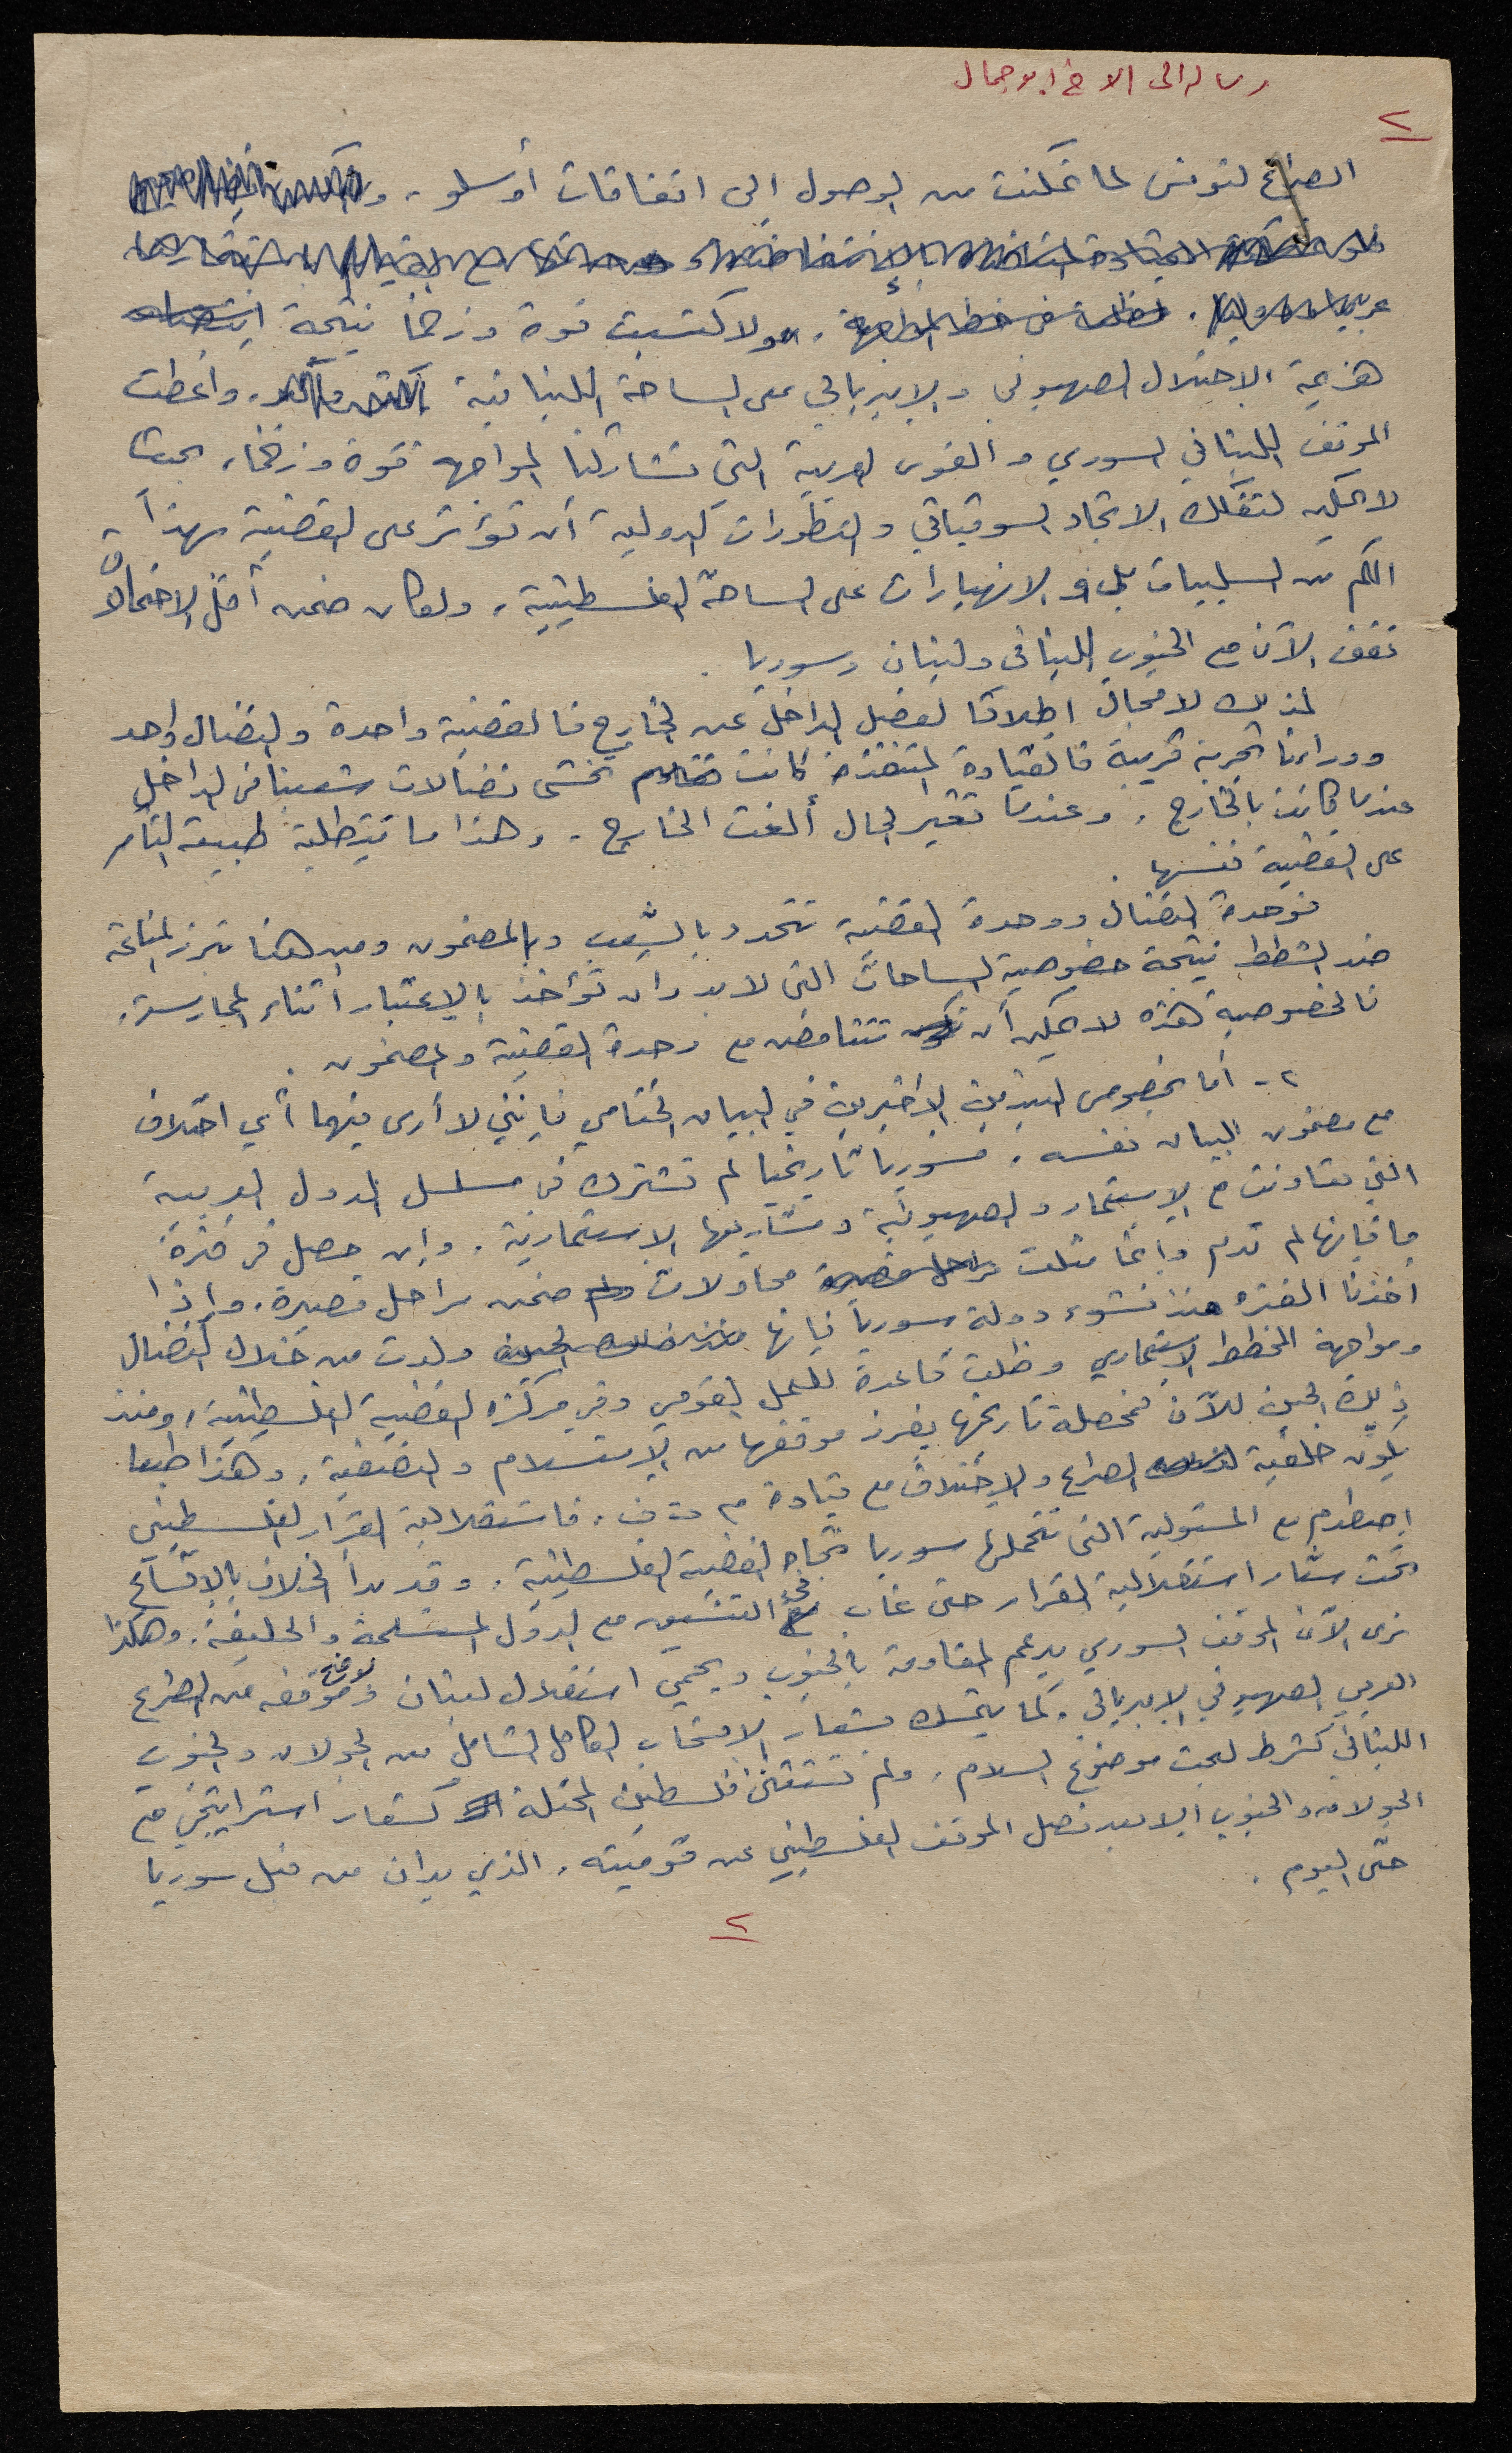 رسالة الى الاخ ابو جمال
٢
الصراع لتونس لما تمكنت من الوصول الى اتفاقات أوسلو. و
ولاكتسبت قوة وزخماً نتيجة
هزيمة الاحتلال الصهيوني والامبريالي على الساحة اللبنانية وأعطت
الموقف اللبناني السوري والقوى العربية التي تشاركنا المواجهه قوة وزخماً، بحيث
لا يمكن لتفكك الاتحاد السوفياتي والتطورات الدولية أن تؤثر على القضية بهذا
الكم من السلبيات بل و الانهيارات على الساحة الفلسطينية، ولو كان ضمن أقل الاحتمالات
نقف الآن مع الجنوب اللبناني ولبنان وسوريا.
لذلك لا مجال اطلاقا لفصل الداخل عن الخارج فالقضية واحدة والنضال واحد
ووراءنا تجربة قريبة فالقيادة المتنفذة كانت تخشى نضالات شعبنا في الداخل
عندما كانت بالخارج، وعندما تغير الحال ألغت الخارج. وهذا ما تتطلبه طبيعة التآمر
على القضية نفسها.
فوحدة النضال ووحدة القضية تتحدد بالشعب وبالمضمون ومن هنا تبرز المناعة
ضد الشطط نتيجة خصوصية الساحات التي لا بد وان تؤخذ بالاعتبار اثناء الممارسة،
فالخصوصية هذه لا يمكن أن تتناقض مع وحدة القضية والمضمون.
٢- أما بخصوص البندين الاخيرين في البيان الختامي فإنني لا أرى فيهما أي اختلاف
مع مضمون البيان نفسه، فسوريا تاريخيا لم تشترك في مسلسل الدول العربية
التي تعاونت مع الاستعمار والصهيونية ومشاريعها الاستعمارية. وإن حصل في فترة
ما فإنها لم تدم وإنما مثلت محاولات ضمن مراحل قصيرة. وإذا
اخذنا الفترة منذ نشوء دولة سوريا فإنها ولدت من خلال النضال
ومواجهة المخطط الاستعماري وظلت قاعدة للعمل القومي وفي مركزه القضية الفلسطينية، ومنذ
ذلك الحين للآن فمحصلة تاريخها يفرز موقفها من الاستسلام والتصفية، وهذا طبعا
يكون خلفية الصراع والاختلاف مع قيادة م ت ف. فاستقلالية القرار الفلسطيني
اصطدم مع المسئولية التي تتحملها سوريا تجاه القضية الفلسطينية. وقد بدأ الخلاف بالاتساع
تحت ستار استقلالية القرار حتى غاب فجأة التنسيق مع الدول المستسلمة والحليفة. وهكذا
نرى الآن الموقف السوري يدعم المقاومة بالجنوب ويحمي استقلال لبنان وموقفه من الصراع
العربي الصهيوني الامبريالي. كما يتمسك بشعار الانسحاب الكامل الشامل من الجولان والجنوب
اللبناني كشرط لبحث موضوع السلام، ولم تستثنى فلسطين المحتلة كشعار استراتيجي مع
الجولان والجنوب الا بعد فصل الموقف الفلسطيني عن قوميته، الذي يدان من قبل سوريا
حتى اليوم.
٢